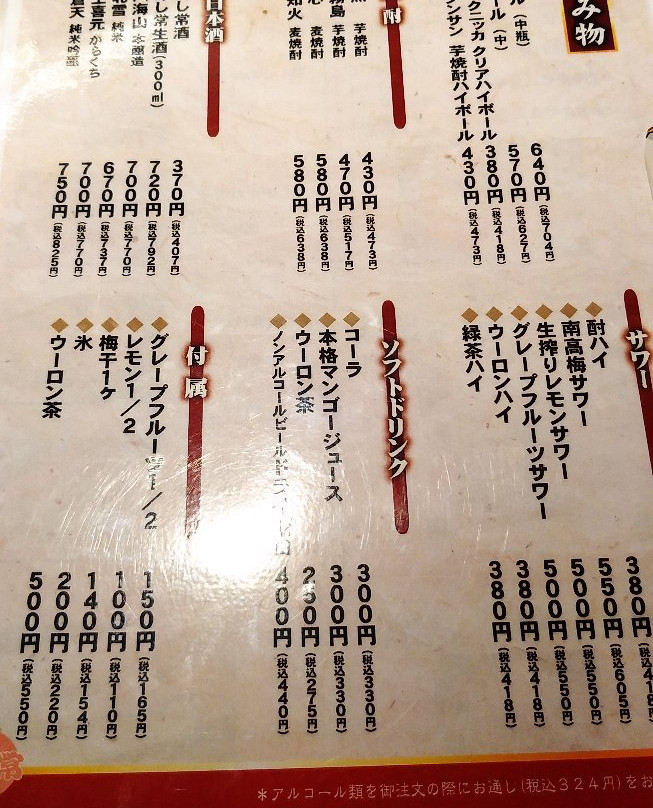 み物
ル(中瓶) 640円(税込704円)
ール(中) 570円(税込627円)
クニッカ クリアハイボール 380円(税込418円)
ンサン 芋焼酎ハイボール 430円(税込473円)
酎
芋焼酎 430円(税込473円)
霧島 芋焼酎 470円(税込517円)
心 麦焼酎 580円(税込638円)
知火 麦焼酎 580円(税込638円)
日本酒
し常酒 370円(税込407円)
し常生酒(300ml) 720円(税込792円)
海山 本醸造 700円(税込770円)
北雪 純米 670円(税込737円)
上喜元 からくち 700円(税込770円)
蒼天 純米吟醸 750円(税込825円)
サワー
酎ハイ 380円(税込418
南高梅サワー 550円(税込605円)
生搾りレモンサワー 500円(税込550円)
グレープフルーツサワー 500円(税込550円)
ウーロンハイ 380円(税込418円)
緑茶ハイ 380円(税込418円)
ソフトドリンク
コーラ 300円(税込330円)
本格マンゴージュース 300円(税込330円)
ウーロン茶 250円(税込275円)
ノンアルコールビール 400円(税込440円)
付属
グレープフルーツ1/2 150円(税込165円)
レモン1/2 100円(税込110円)
梅干1ヶ 140円(税込154円)
氷 200円(税込220円)
ウーロン茶 500円(税込550円)
常
*アルコール類を御注文の際にお通し(税込324円)をお